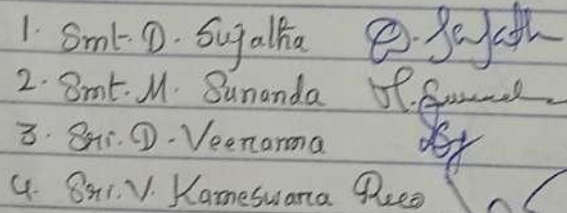 1. Smt. D. Sujatha D. Sujath
2. Smt. M. Sunanda M.
3. Sri. D. Veeranna
4. Sri. V. Kameswara Rao